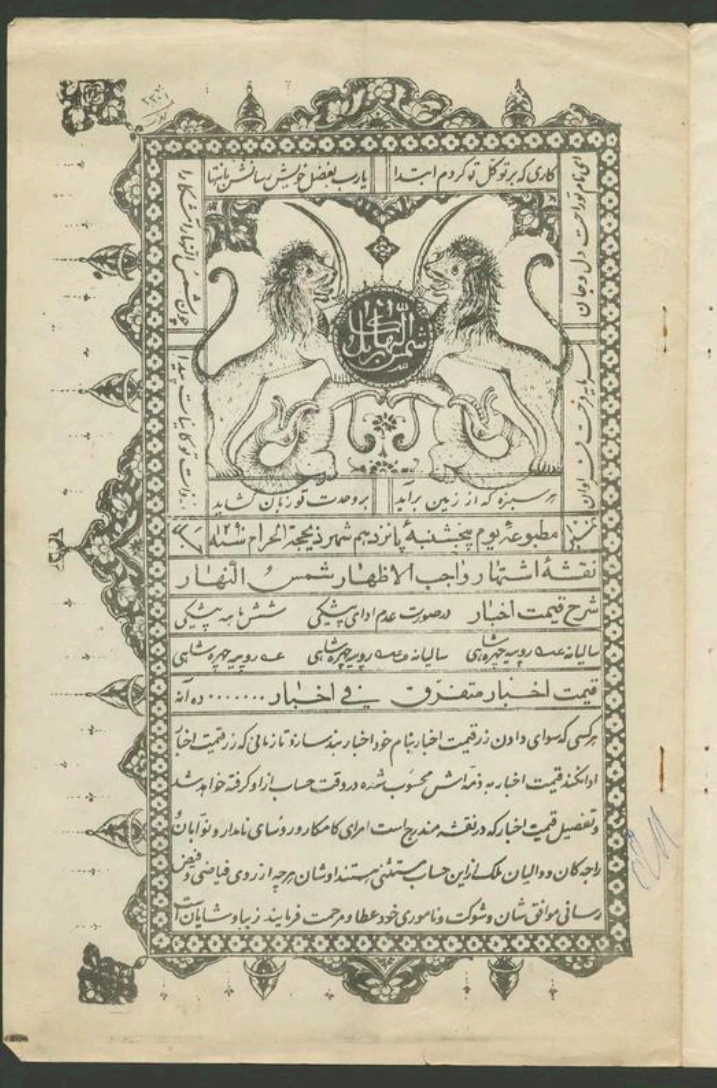 کاری که بر توکل تو کردم ابتدا
یارب بفضل خویش رسانش بانتها
ای نام تو راحت دل و جان
سرمایه درخت فراوان
چون شمس النهار آشکارا
از ذات تو کاینات پیدا
شمس النهار کابل
هر سبزه که از زمین برآید
بر وحدت تو زبان گشاید
مطبوعهٔ یوم پنجشنبه پانزدهم شهر ذیحجة الحرام سنه ۱۲۹۰
نقشهٔ اشتهار واجب الاظهار شمس النهار
شرح قیمت اخبار در صورت عدم ادای پیشکی شش ماهه پیشکی
سالیانه روپیه چهره شاهی سالیانه روپیه چهره شاهی روپیه چهره شاهی
قیمت اخبار متفرق فی اخبار ....... ده آنه
هر کسی که سوای دادن زر قیمت اخبار بنام خود اخبار بند سازد تا زمانی که زر قیمت اخبار
ادا نکند قیمت اخبار به ذمه اش محسوب شده در وقت حساب ازو گرفته خواهد شد
و تفصیل قیمت اخبار که در نقشه مندرج است امرای کامکار و روسای نامدار و نوابان و
راجه کان و والیان ملک از این حساب مستثنی هستند اوشان هرچه از روی فیاضی و فیض
رسانی موافق شان و شوکت و ناموری خود عطا و مرحمت فرمایند زیبا و شایان است